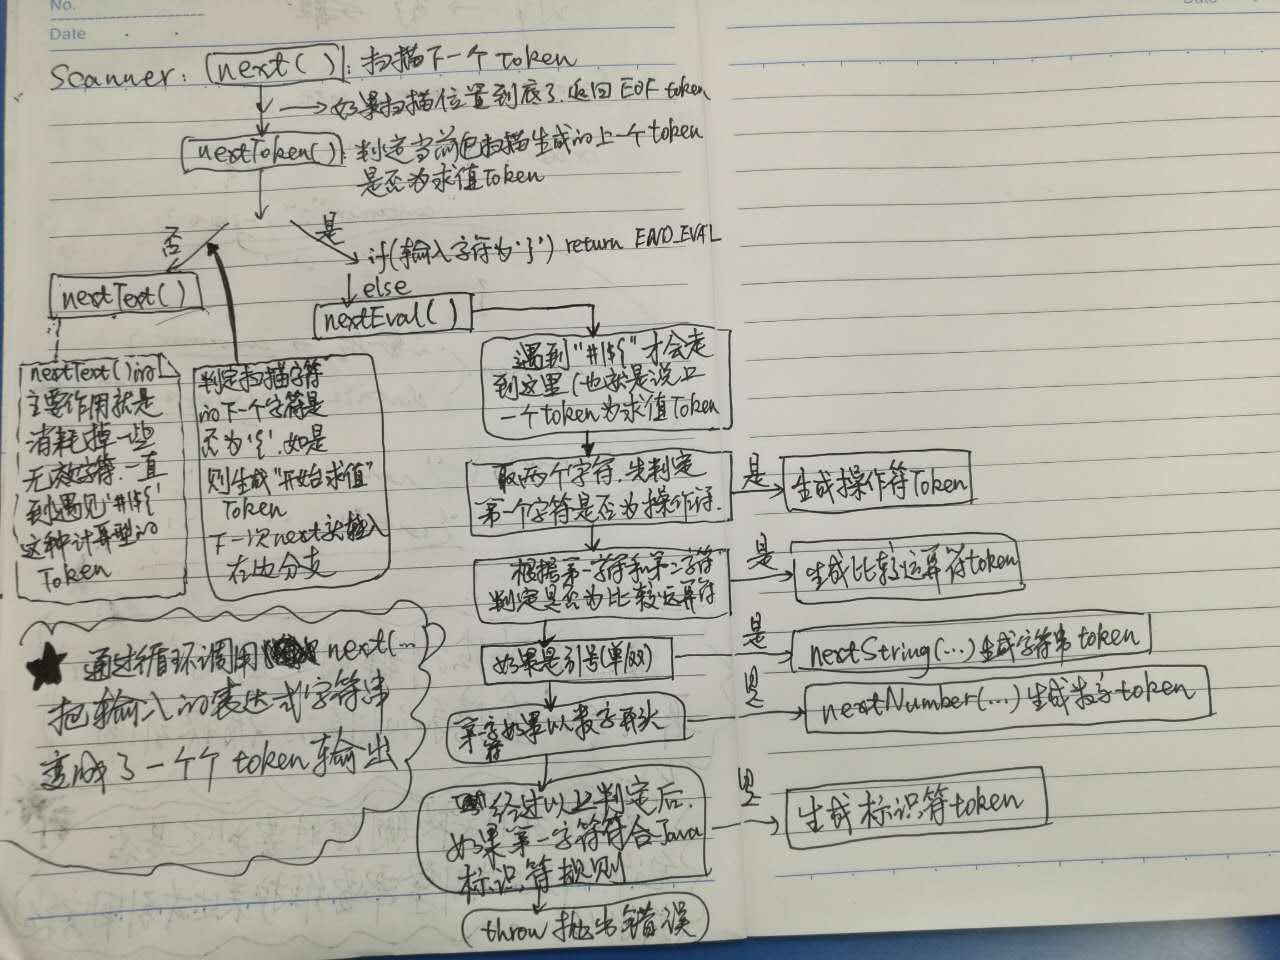 No.
Date
Date
Scanner: next( ): 扫描下一个 Token
→ 如果扫描位置到底了.返回 EOF token
nextToken( ): 判定当前包扫描生成的上一个token
是否为求值Token
否
是
if(输入字符为'}') return END_EVAL
else
nextText( )
nextEval( )
nextText( )的
主要作用就是
消耗掉一些
无效字符.一直
到遇见'#|${'
这种计算型的
Token
判定扫描字符
的下一个字符是
否为'{'.如是
则生成"开始求值"
Token
下一次next就插入
右边分支
遇到"#|${"才会走
到这里(也就是说上
一个token为求值Token
取两个字符.先判定
第一个字符是否为操作符.
是
生成操作符Token
根据第一字符和第二字符
判定是否为比较运算符
是
生成比较运算符token
如果是引号(单/双)
是
nextString(...)生成字符串token
第一字符如果以数字开头
是
nextNumber(...)生成数字token
经过以上判定后.
如果第一字符符合Java
标识符规则
是
生成标识符token
throw 抛出错误
★ 通过循环调用 next(...
把输入的表达式字符串
变成了一个个token输出